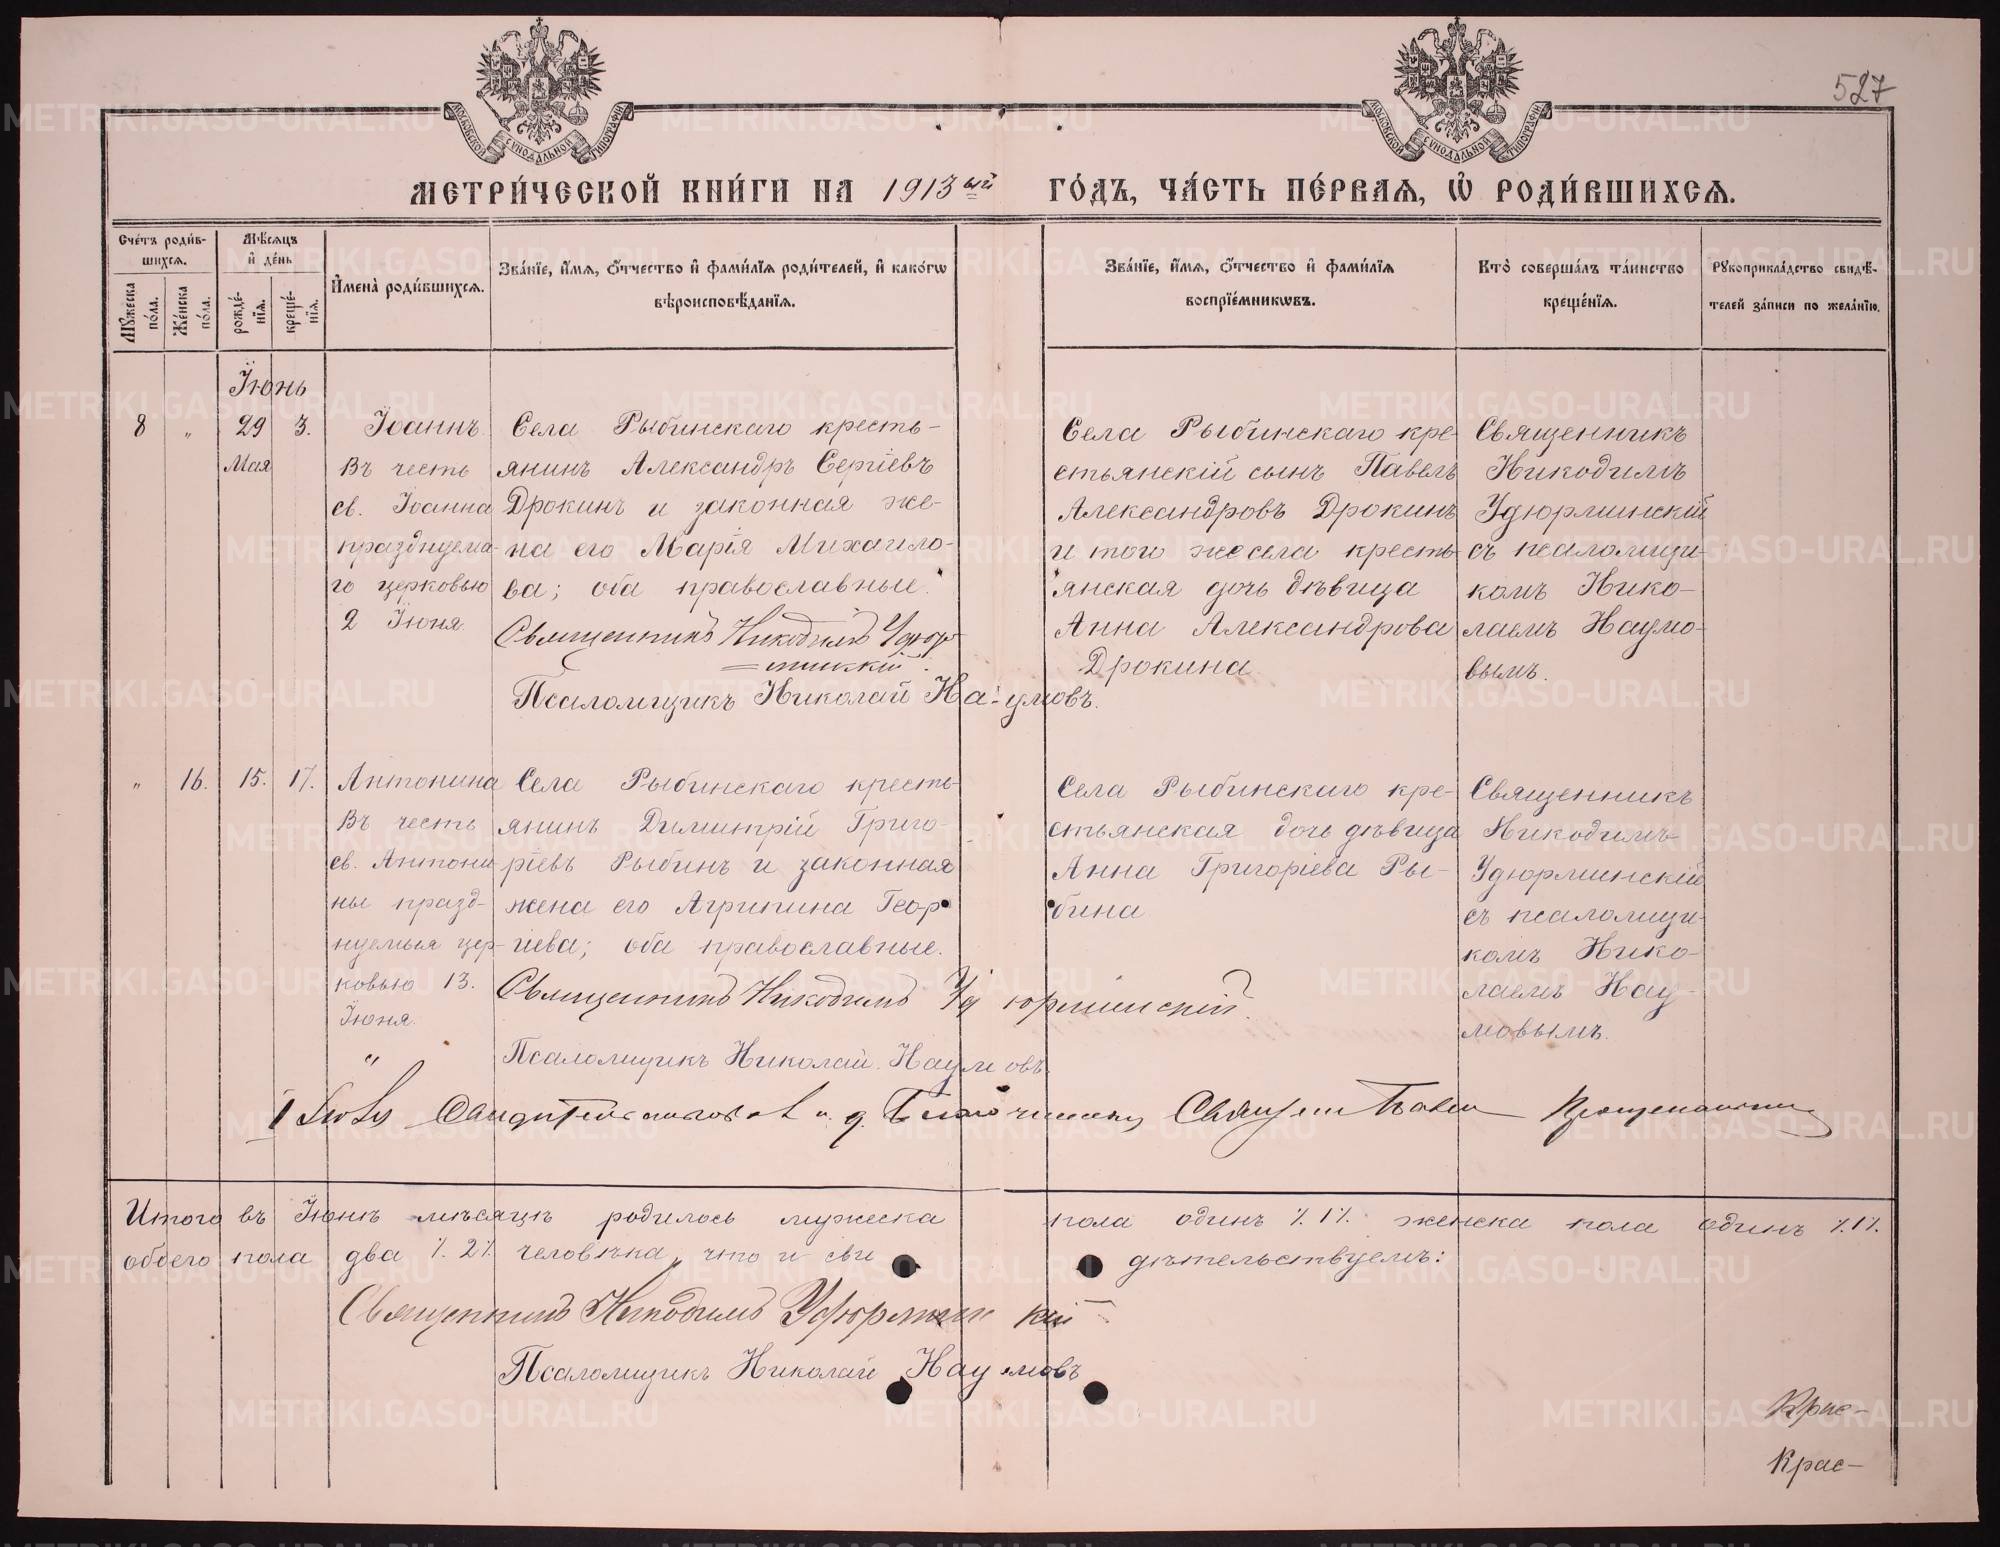 527
МОСКОВСКОЙ СѴНОДАЛЬНОЙ ТИПОГРАФІИ
МОСКОВСКОЙ СѴНОДАЛЬНОЙ ТИПОГРАФІИ
МЕТРИ́ЧЕСКОЙ КНИ́ГИ НА 1913 ый ГО́ДЪ, ЧА́СТЬ ПЕ́РВАѦ, Ѡ҆ РОДИ́ВШИХСѦ.
Сче́тъ роди́в-
шихсѧ.
Мꙋ́жеска по́ла.
Же́нска по́ла.
Мѣ́сѧцъ
и҆ де́нь
рожде́-
нїѧ.
креще́-
нїѧ.
И҆мена̀ роди́вшихсѧ.
Зва́нїе, и҆́мѧ, ѻ҆́тчество и҆ фами́лїѧ роди́телей, и҆ како́гѡ
вѣроисповѣ́данїѧ.
Зва́нїе, и҆́мѧ, ѻ҆́тчество и҆ фами́лїѧ
воспрїе́мникѡвъ.
Кто̀ соверша́лъ та́инство
креще́нїѧ.
Рꙋкоприкла́дство свидѣ́-
телей за́писи по жела́нїю.
Іюнь
8 " 29 3.
Мая
Іоаннъ
Въ честь
св. Іоанна
празднуема-
го церковью
2 Іюня
Села Рыбинскаго кресть-
янинъ Александръ Сергіевъ
Дрокинъ и законная же-
на его Марія Михаило-
ва; оба православные.
Священникъ Никодимъ Удюр-
минскій.
Псаломщикъ Николай Наумовъ.
Села Рыбинскаго кре-
стьянскій сынъ Павелъ
Александровъ Дрокинъ
и того же села кресть-
янская дочь дѣвица
Анна Александрова
Дрокина
Священникъ
Никодимъ
Удюрминскій
съ псаломщи-
комъ Нико-
лаемъ Наумо-
вымъ.
" 16. 15. 17.
Антонина
Въ честь
св. Антони
ны празд-
нуемыя цер-
ковью 13.
Іюня.
"
Села Рыбинскаго кресть-
янинъ Димитрій Григо-
ріевъ Рыбинъ и законная
жена его Агрипина Геор-
гіева; оба православные.
Священникъ Никодимъ Удюрминскій.
Псаломщикъ Николай Наумовъ.
Села Рыбинскаго кре-
стьянская дочь дѣвица
Анна Григоріева Ры-
бина
Священникъ
Никодимъ
Удюрминскій
съ псаломщи-
комъ Нико-
лаемъ Нау-
мовымъ.
Итого въ Іюнѣ мѣсяцѣ родилось мужеска пола одинъ %1% женска пола одинъ %1%
обоего пола два %2% человѣка, что и свидѣтельствуемъ:
Священникъ Никодимъ Удюрминскій
Псаломщикъ Николай Наумовъ
Крас-
Крас-